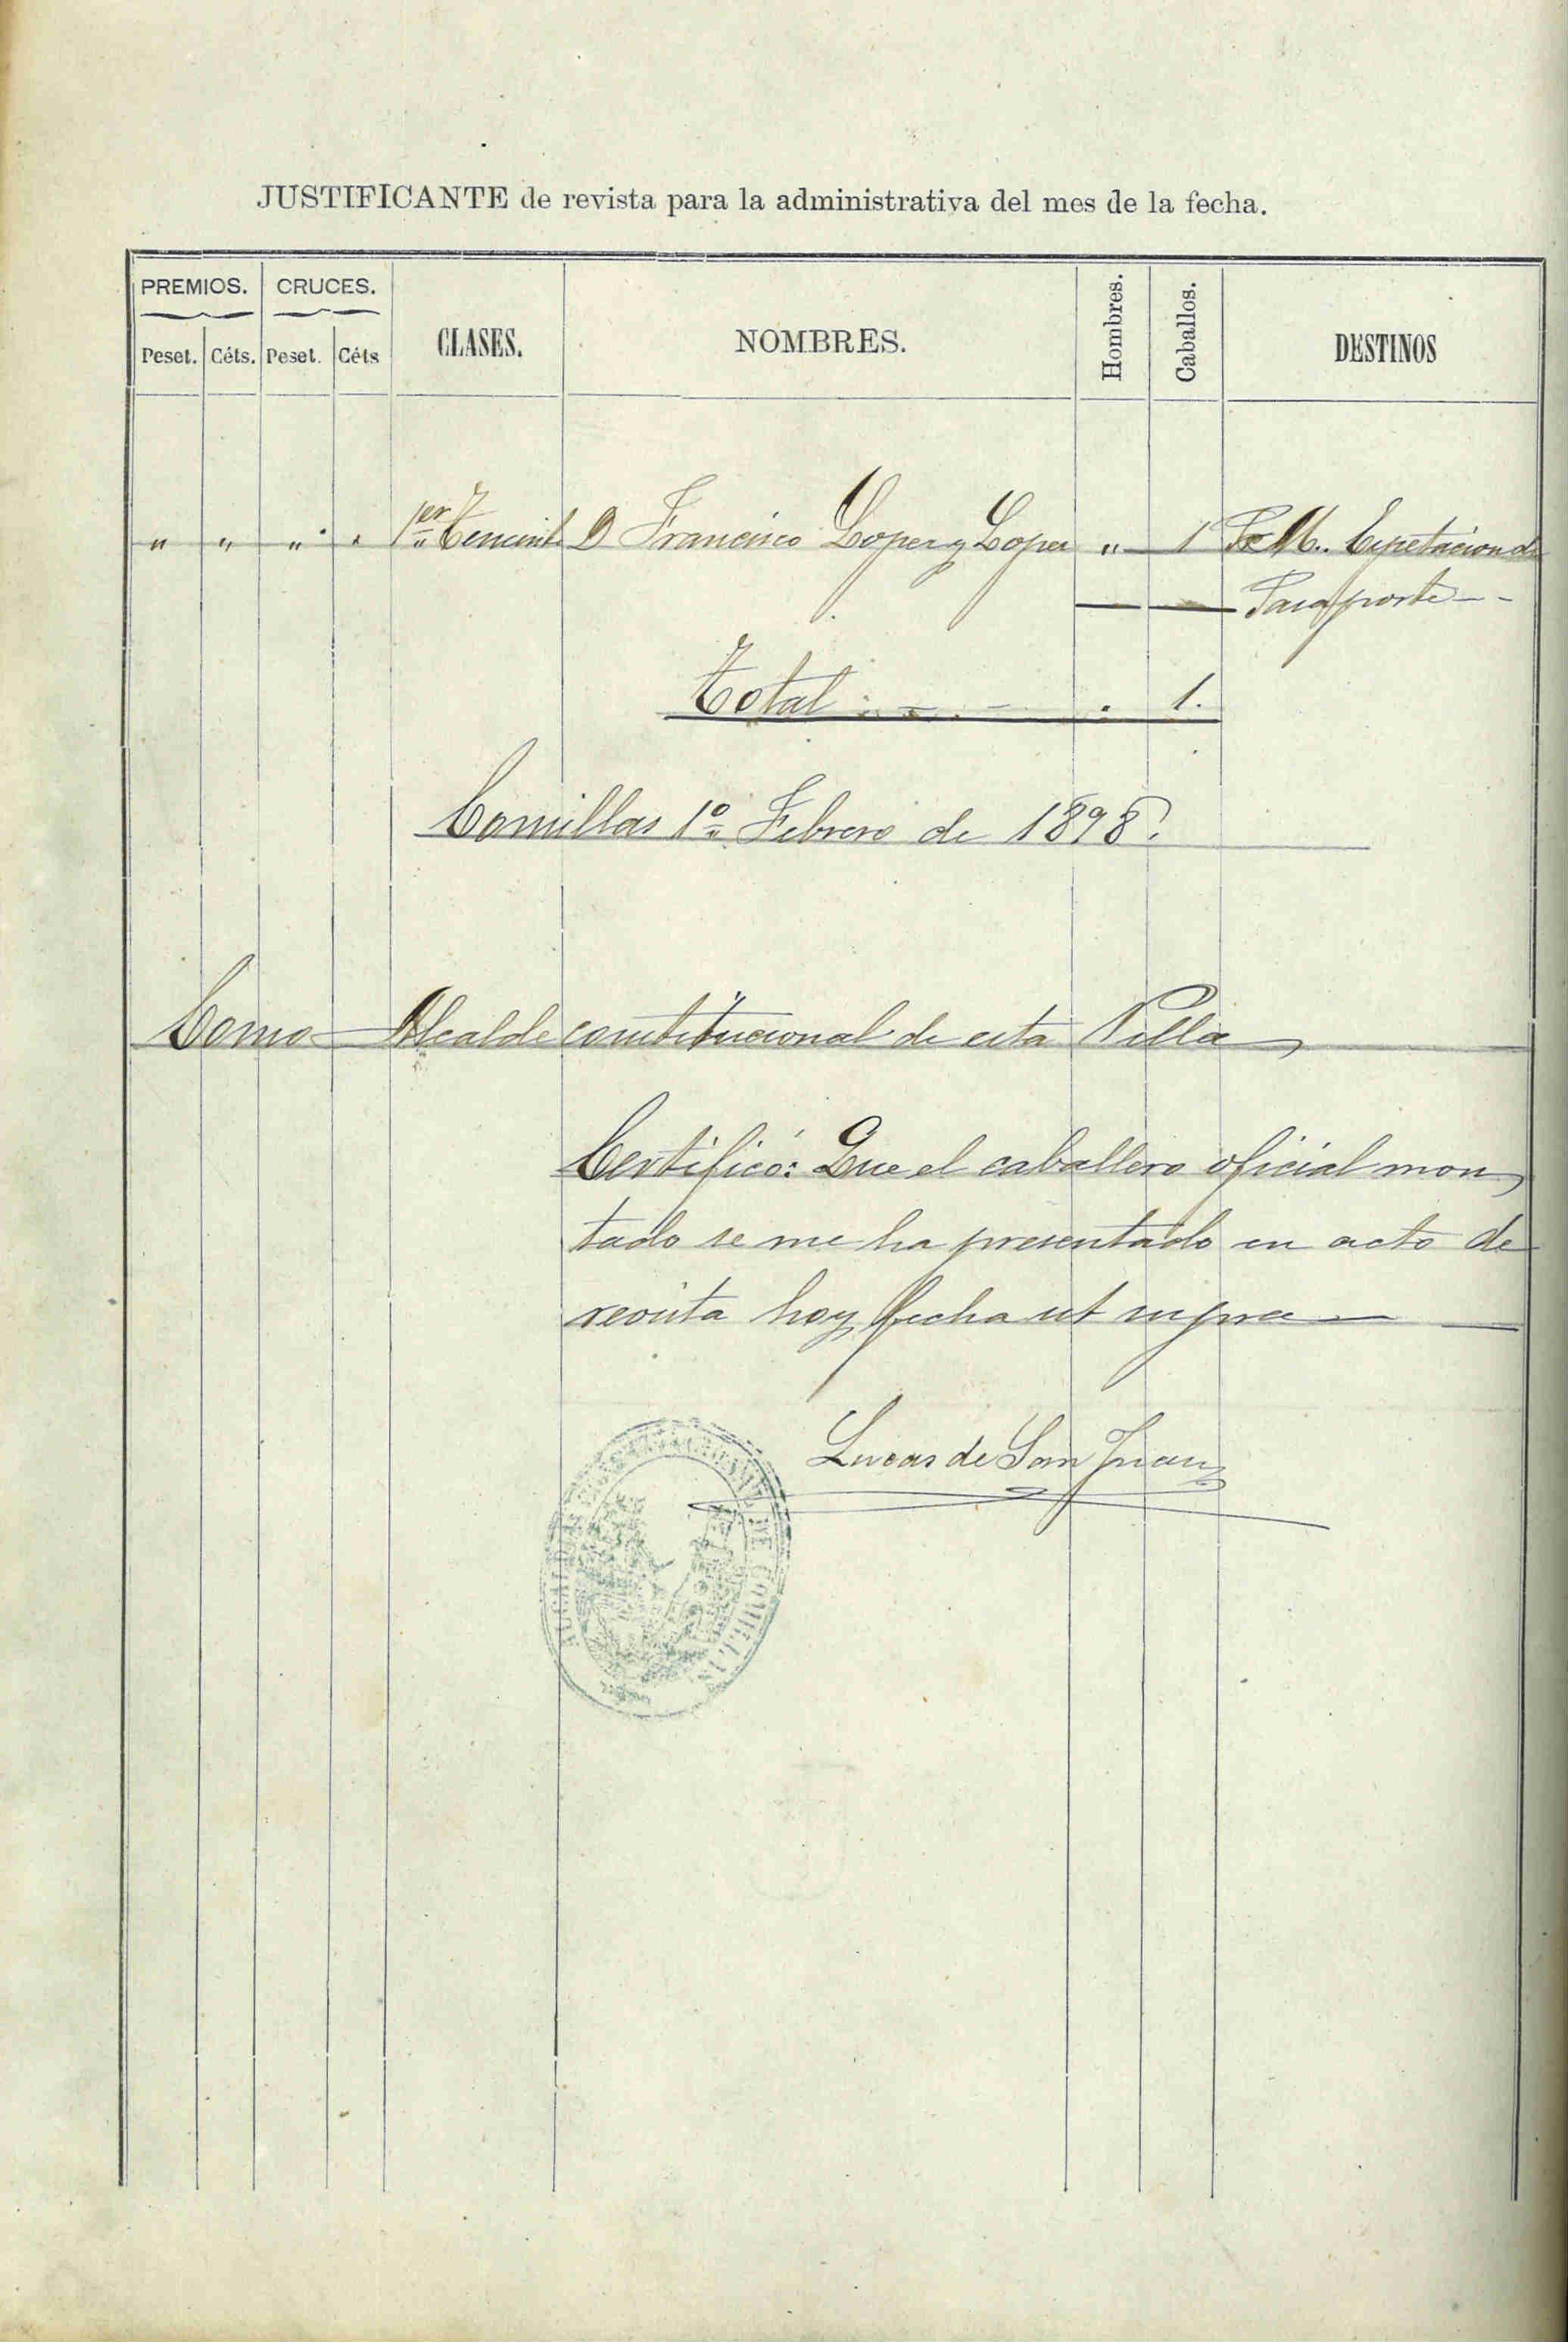 JUSTIFICANTE de revista para la administrativa del mes de la fecha.
PREMIOS. CRUCES. CLASES. NOMBRES. Hombres. Caballos. DESTINOS
Peset. Céts. Peset. Céts
" " " " 1er Teniente D Francisco Lopez y Lopez " 1
Pasaporte
Total . 1.
Comillas 1º Febrero de 1898.
Como Alcalde constitucional de esta Villa
Certifico: Que el caballero oficial mon
tado se me ha presentado en acto de
revista hoy fecha ut supra
Lucas de San Juan
DE COMILLAS